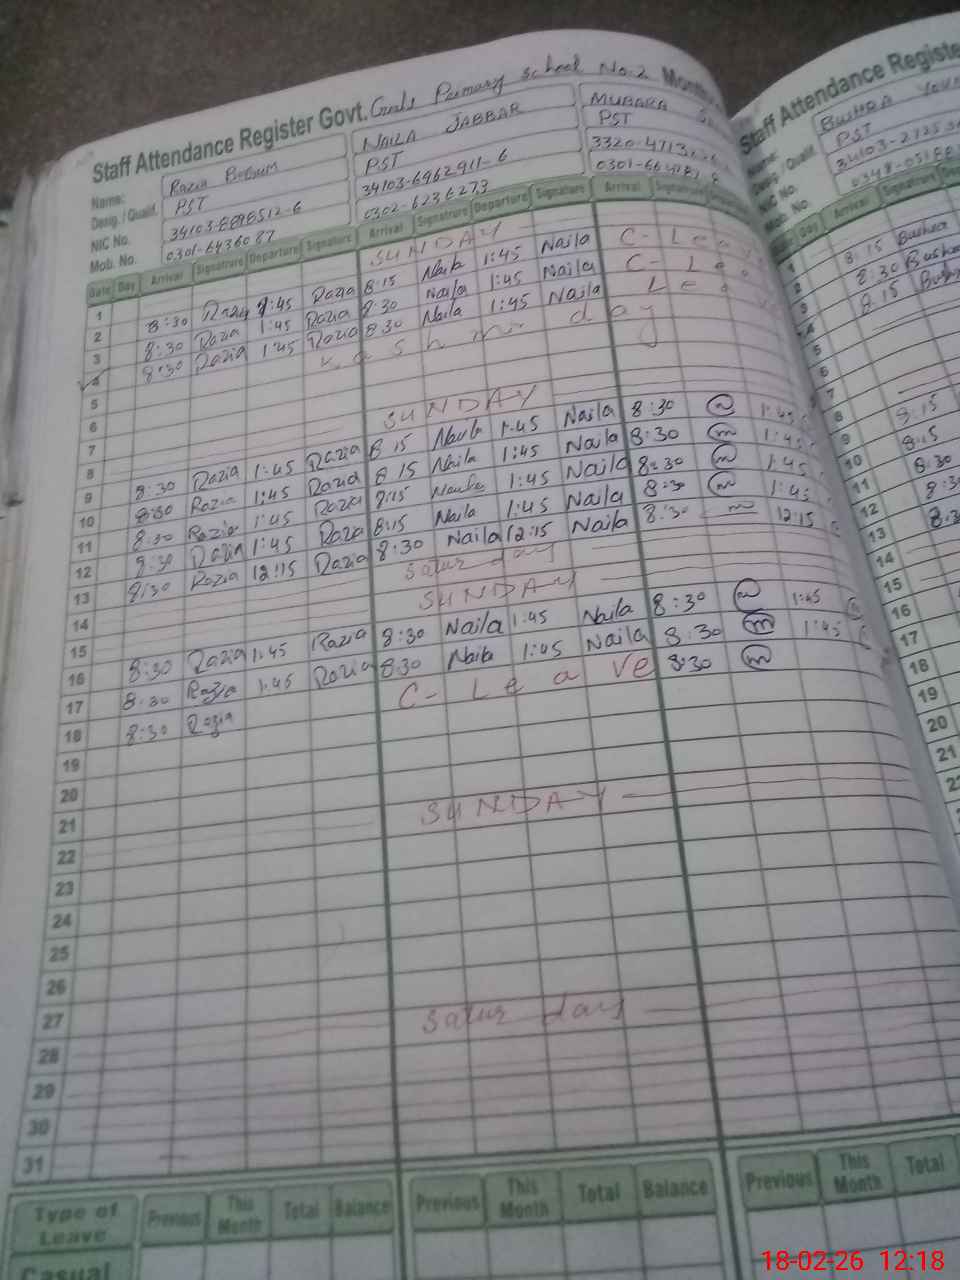 Staff Attendance Register Govt. Girls Primary School No. 2 Month
Name: Razia Begum NAILA JABBAR MUBARA
Desig. / Qualif. PST PST PST
NIC No. 34103-6962911-6
Mob. No. 0301-6436087 0302-6236273
Date Day Arrival Signature Departure Signature Arrival Signature Departure Signature Arrival Signature
1 SUNDAY
2 8:30 Razia 1:45 Razia 8:15 Naila 1:45 Naila C- Leav
3 8:30 Razia 1:45 Razia 8:30 Naila 1:45 Naila C- Lea
4 8:30 Razia 1:45 Razia 8:30 Naila 1:45 Naila Lea
5 Kashmir day
6
7
8 SUNDAY
9 8:30 Razia 1:45 Razia 8 15 Naila 1:45 Naila 8:30 1:45
10 8:30 Razia 1:45 Razia 8 15 Naila 1:45 Naila 8:30 1:45
11 8:30 Razia 1:45 Razia 8:15 Naila 1:45 Naila 8:30 m 1:45
12 8:30 Razia 1:45 Razia 8:15 Naila 1:45 Naila 8:30 m 1:45
13 8:30 Razia 12:15 Razia 8:30 Naila 12:15 Naila 8:30 m 12:15
14 Satur day
15 SUNDAY
16 8:30 Razia 1:45 Razia 8:30 Naila 1:45 Naila 8:30 1:45
17 8:30 Razia 1:45 Razia 8:30 Naila 1:45 Naila 8:30 m 1:45
18 8:30 Razia C- Leave 8:30 m
19
20
21
22 SUNDAY
23
24
25
26
27
28 Satur day
29
30
31
Type of Leave Previous This Month Total Balance Previous This Month Total Balance Previous This Month Total
Casual
Staff Attendance Register
BUSHRA
PST
Arrival Signature
8:15 Bushra
8:30 Bushra
8:15 Bush
8:15
8:15
8:30
8:3
8:3
18-02-26 12:18